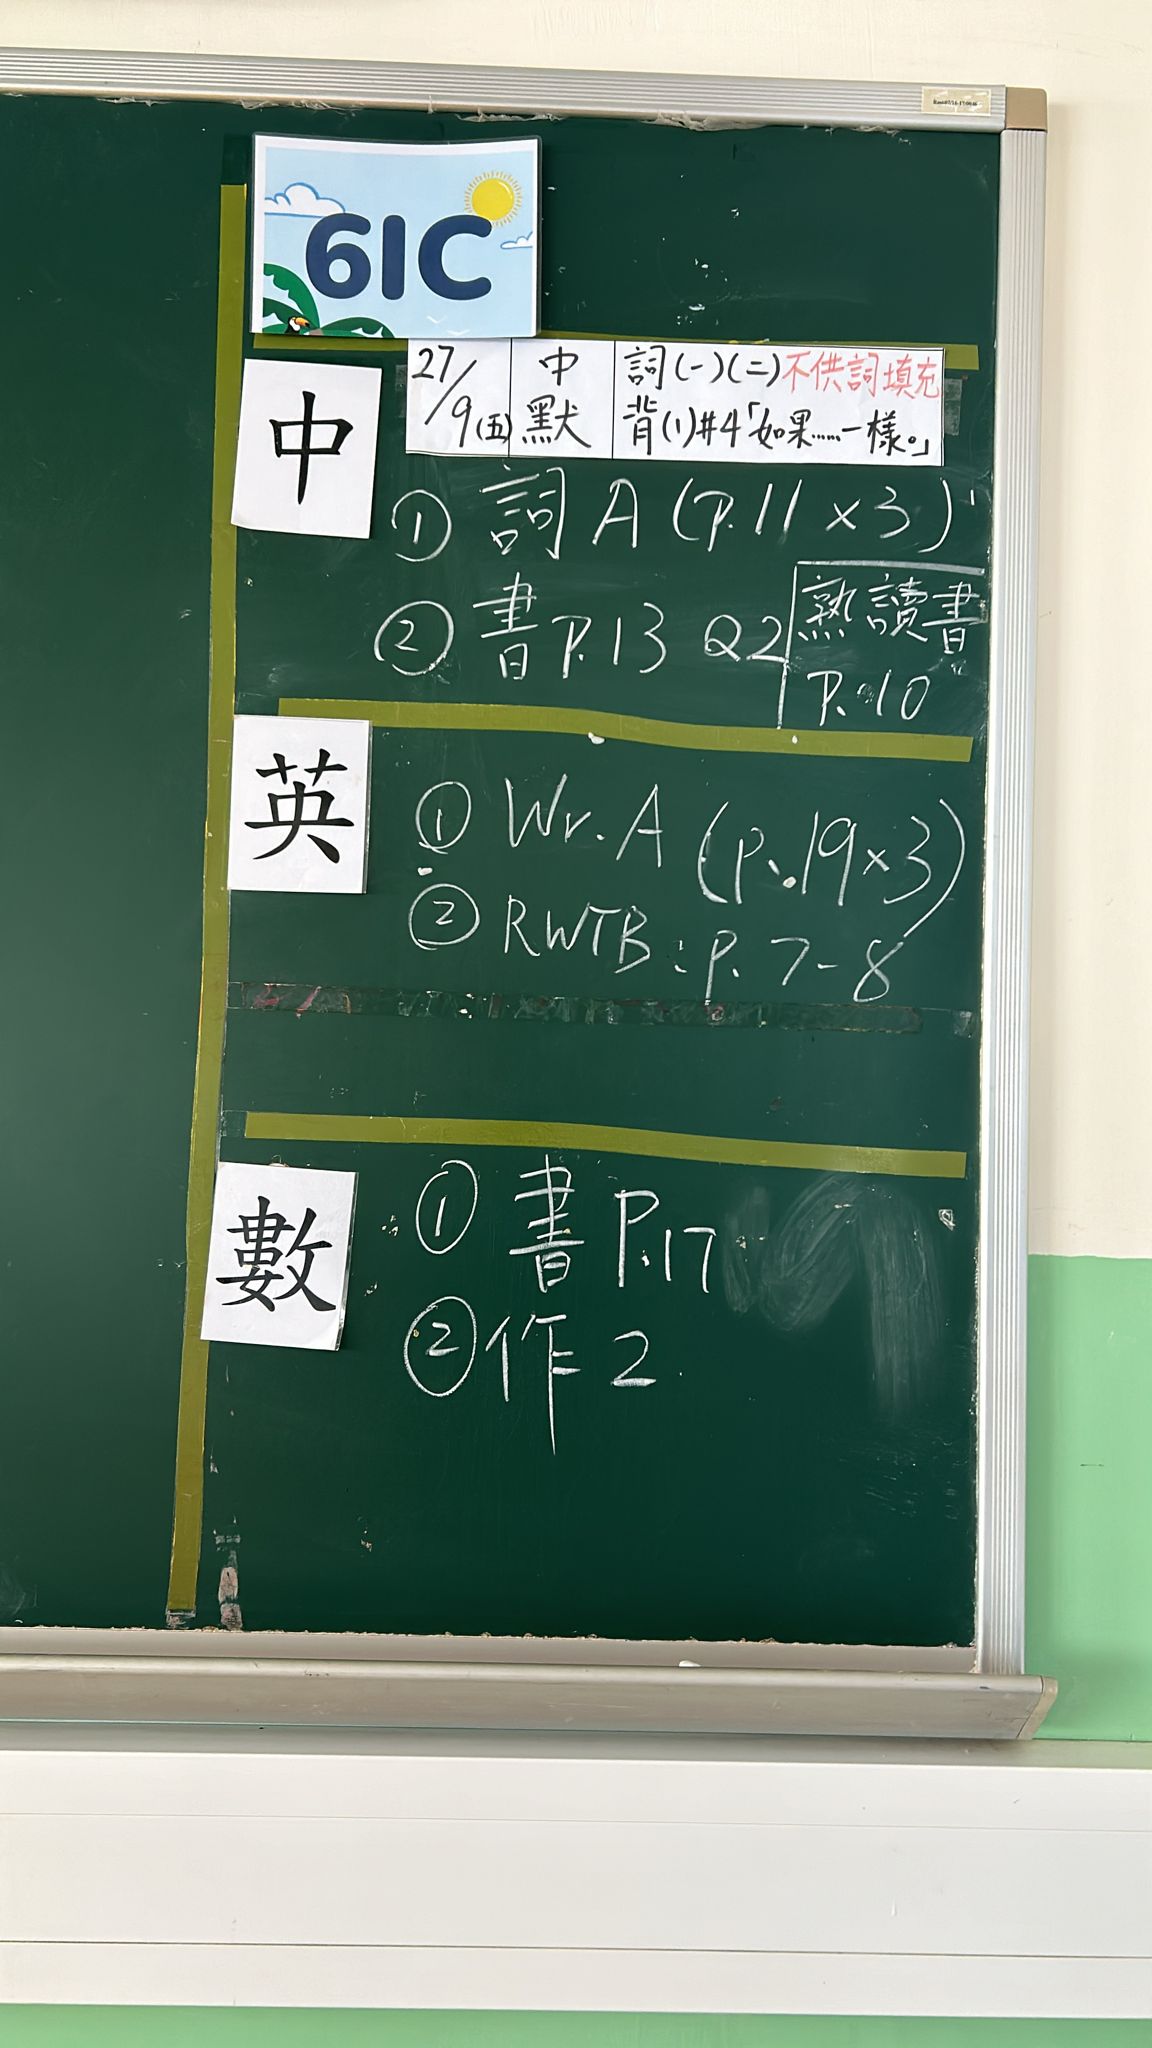 6IC
中
27/9(五) 中默 詞(一)(二)不供詞填充
背(1)#4「如果……一樣。」
① 詞A (P.11 x 3)
② 書 P.13 Q2
熟讀書
P.10
英
① Wr. A (p.19 x 3)
② RWTB : p. 7-8
數
① 書 P.17
② 作 2